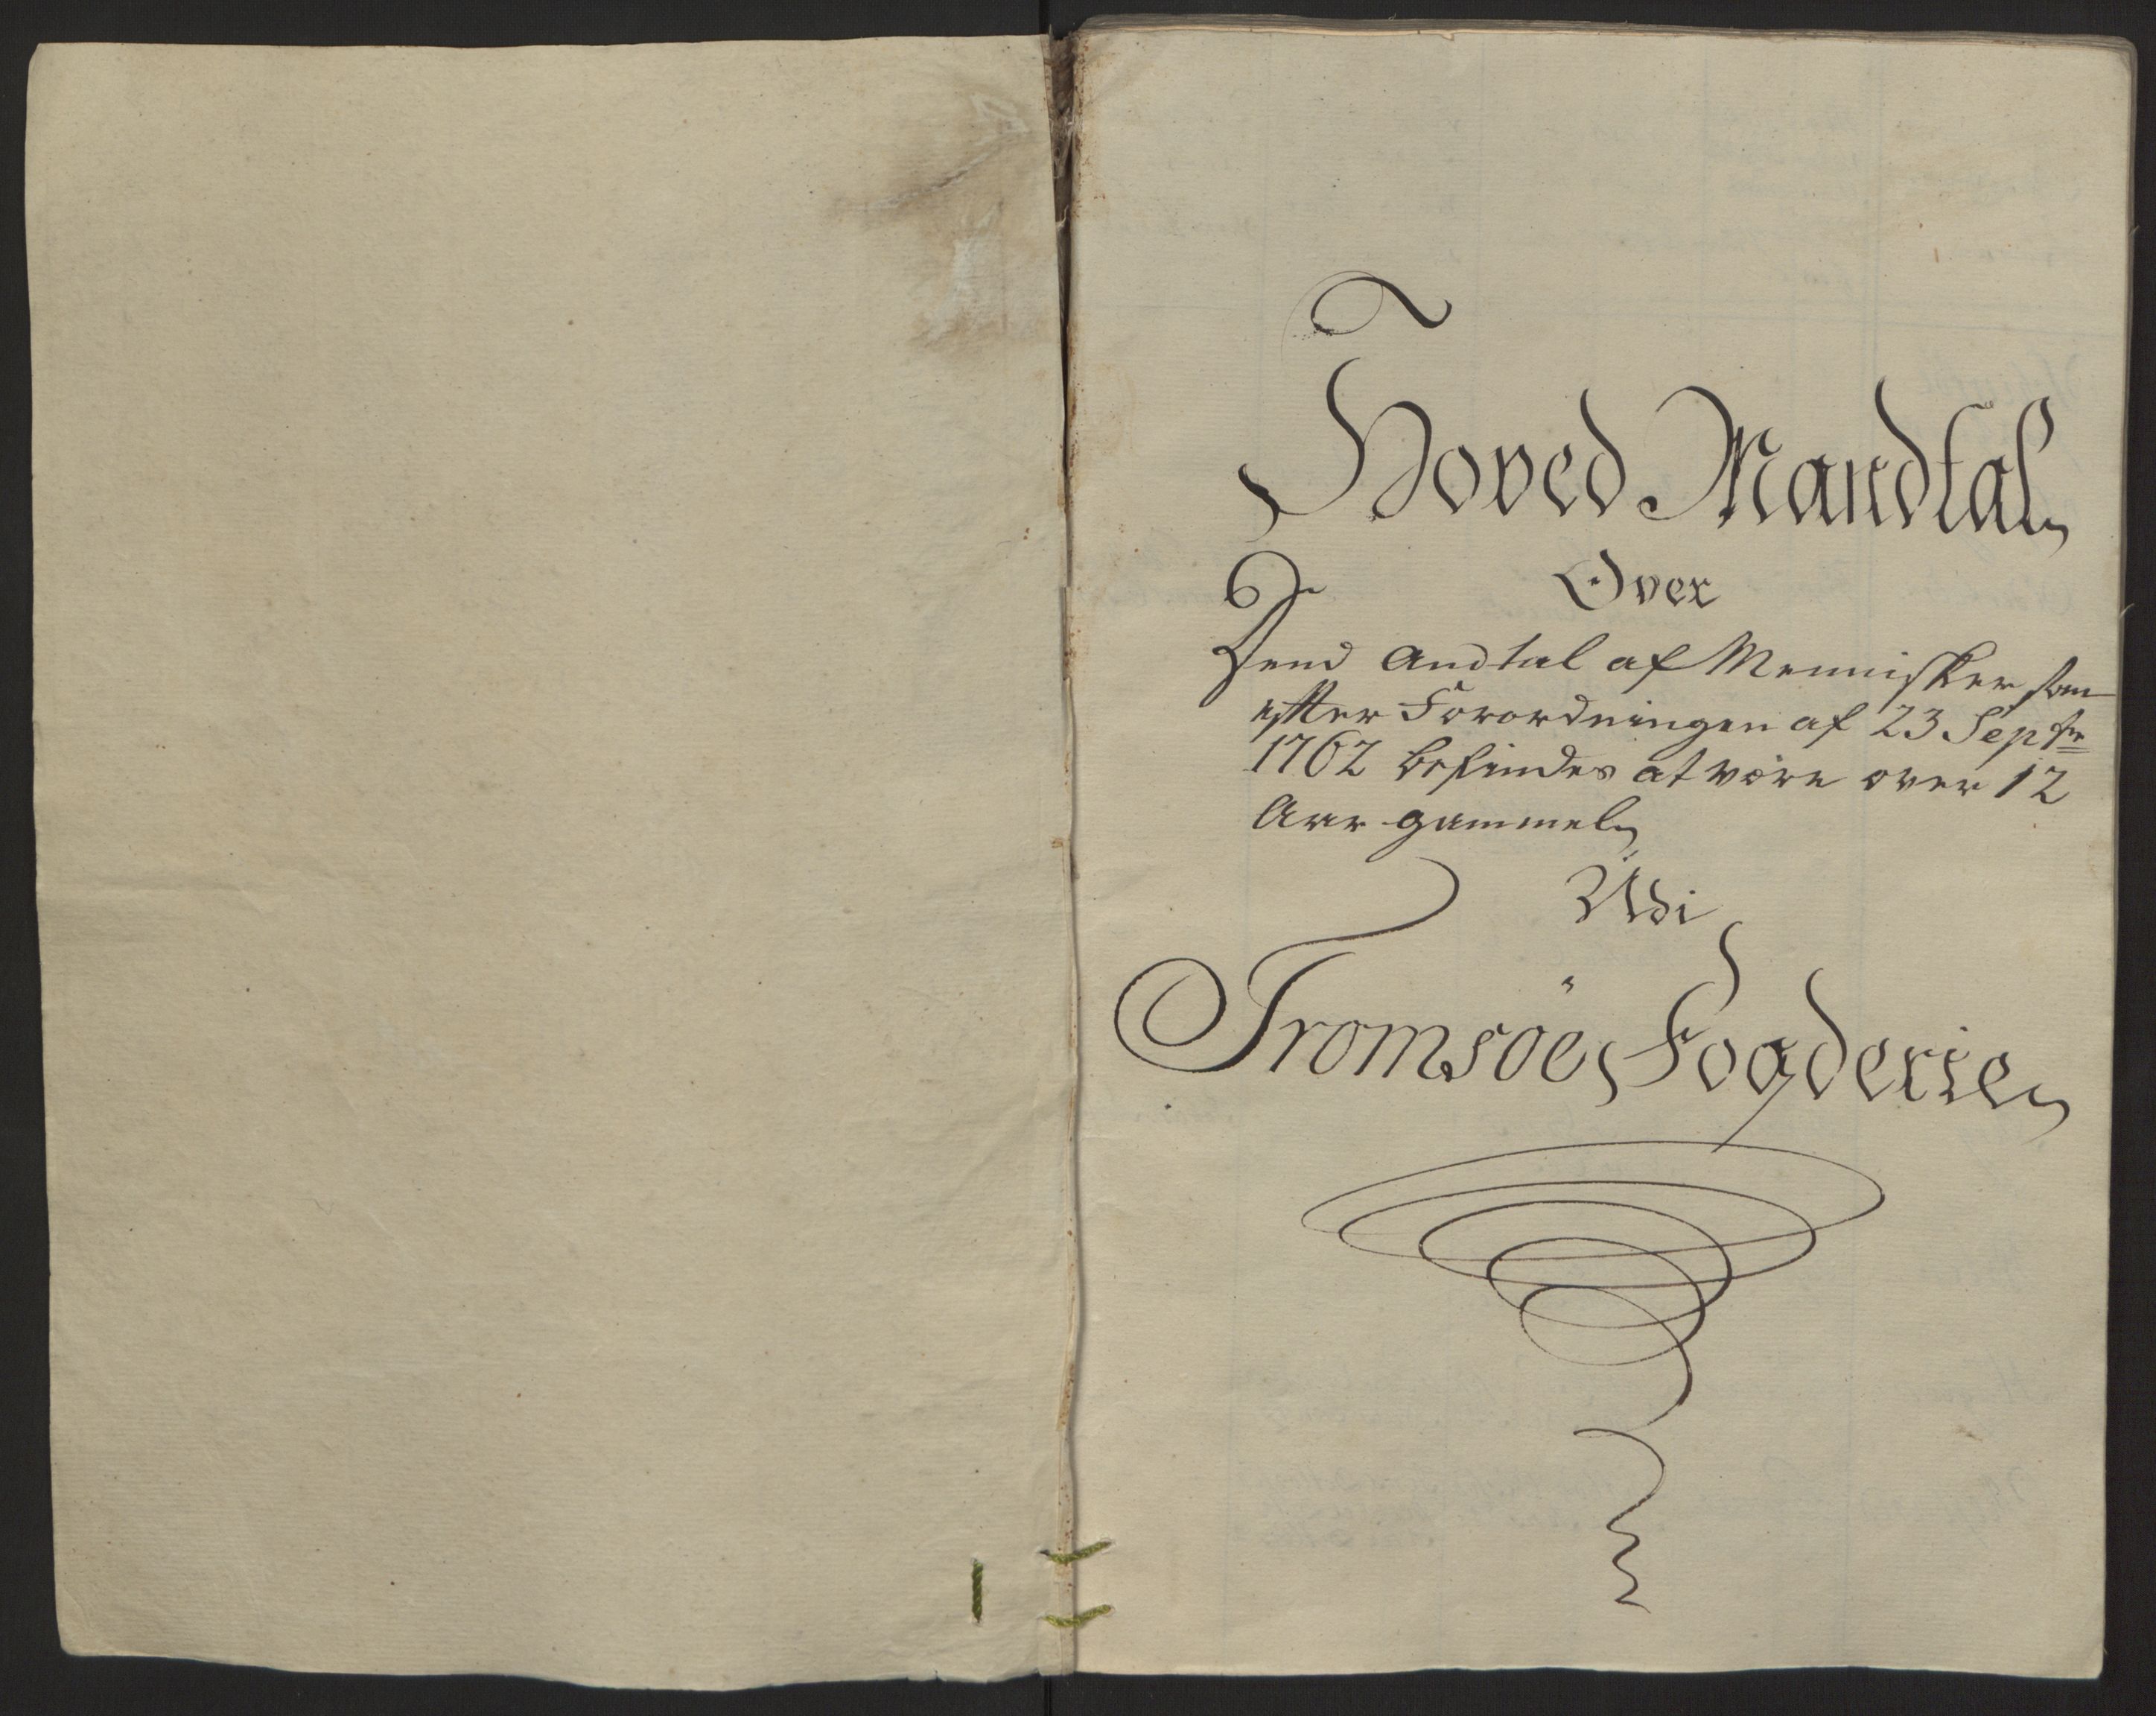 Hoved Mandtal
Over
Dend Andtal af Mennisker som
efter Forordningen af 23 Septr
1762 befindes at være over 12
Aar gammel
Udi
Tromsöe Fogderie